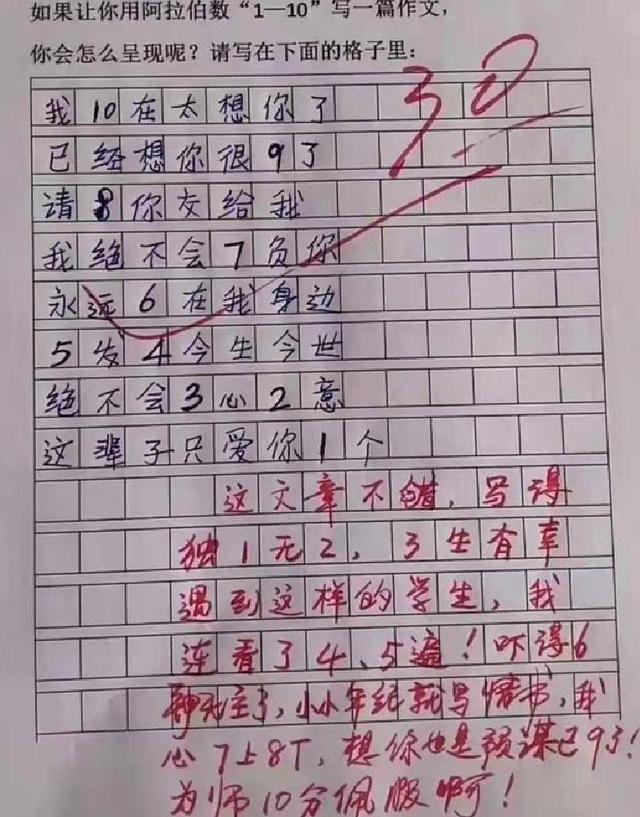 如果让你用阿拉伯数“1—10”写一篇作文，
你会怎么呈现呢？请写在下面的格子里：
我10在太想你了
已经想你很9了
请8你交给我
我绝不会7负你
永远6在我身边
5发4今生今世
绝不会3心2意
这辈子只爱你1个
这文章不错，写得
独1无2，3生有幸
遇到这样的学生，我
连看了4、5遍！吓得6
神无主了，小小年纪就写情书，我
心7上8下，想你也是预谋已9了！
为师10分佩服啊！